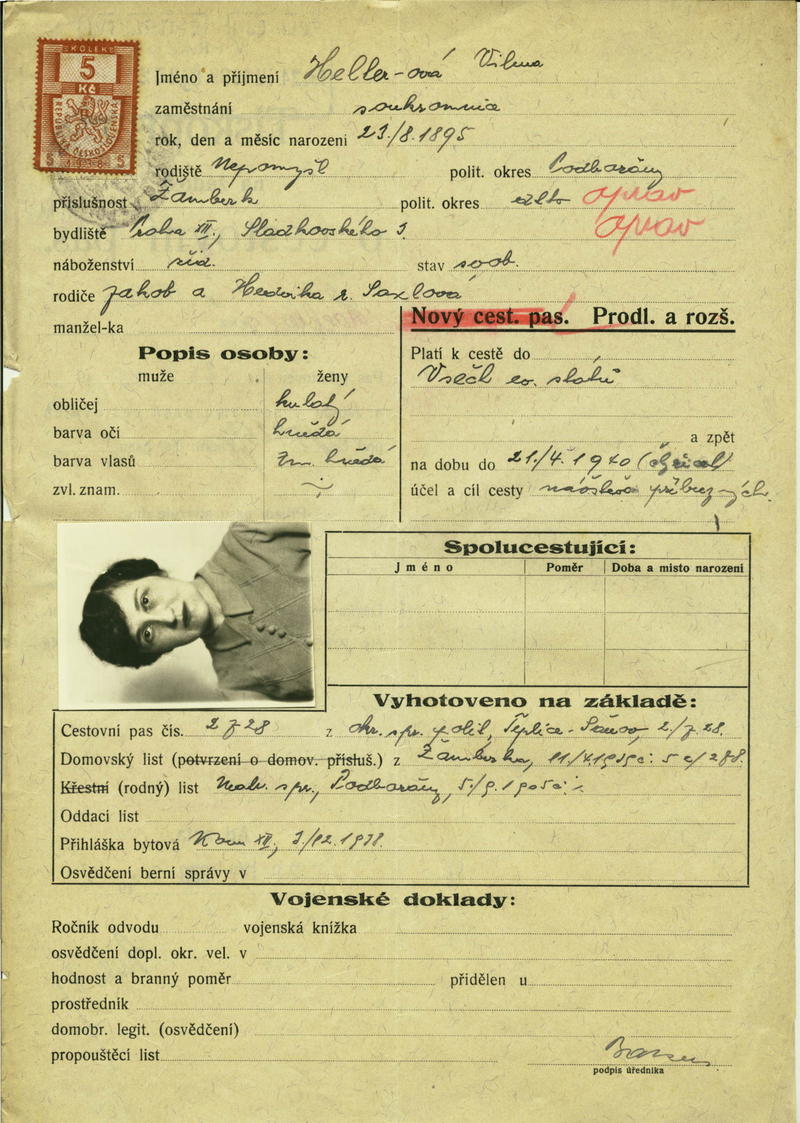 KOLEK
5
Kč
REPUBLIKA ČESKOSLOVENSKÁ
5 1938 5
Jméno a příjmení Heller-ová Vilma
zaměstnání soukromnice
rok, den a měsíc narození 23./8. 1895
rodiště Nepomyšl polit. okres Podbořany
příslušnost Žamberk polit. okres oprav
bydliště Praha XII., Sladkovského 3. oprav
náboženství žid. stav svob.
rodiče Jakob a Hedvika r. Saxlová
manžel-ka
Nový cest. pas. Prodl. a rozš.
Popis osoby:
muže ženy
obličej kulatý
barva očí hnědá
barva vlasů tm. hnědá
zvl. znam.
Platí k cestě do
Všech ev. států
a zpět
na dobu do 21./4. 1940
účel a cíl cesty návštěva příbuzných.
Spolucestující:
Jméno Poměr Doba a misto narození
Vyhotoveno na základě:
Cestovní pas čís. z okr. spr. polit.
Domovský list (potvrzení o domov. přísluš.) z Žamberka,
Křestní (rodný) list Podbořany,
Oddací list
Přihláška bytová XII, 3./12. 1938.
Osvědčení berní správy v
Vojenské doklady:
Ročník odvodu vojenská knížka
osvědčení dopl. okr. vel. v
hodnost a branný poměr přidělen u
prostředník
domobr. legit. (osvědčení)
propouštěcí list
podpis úředníka